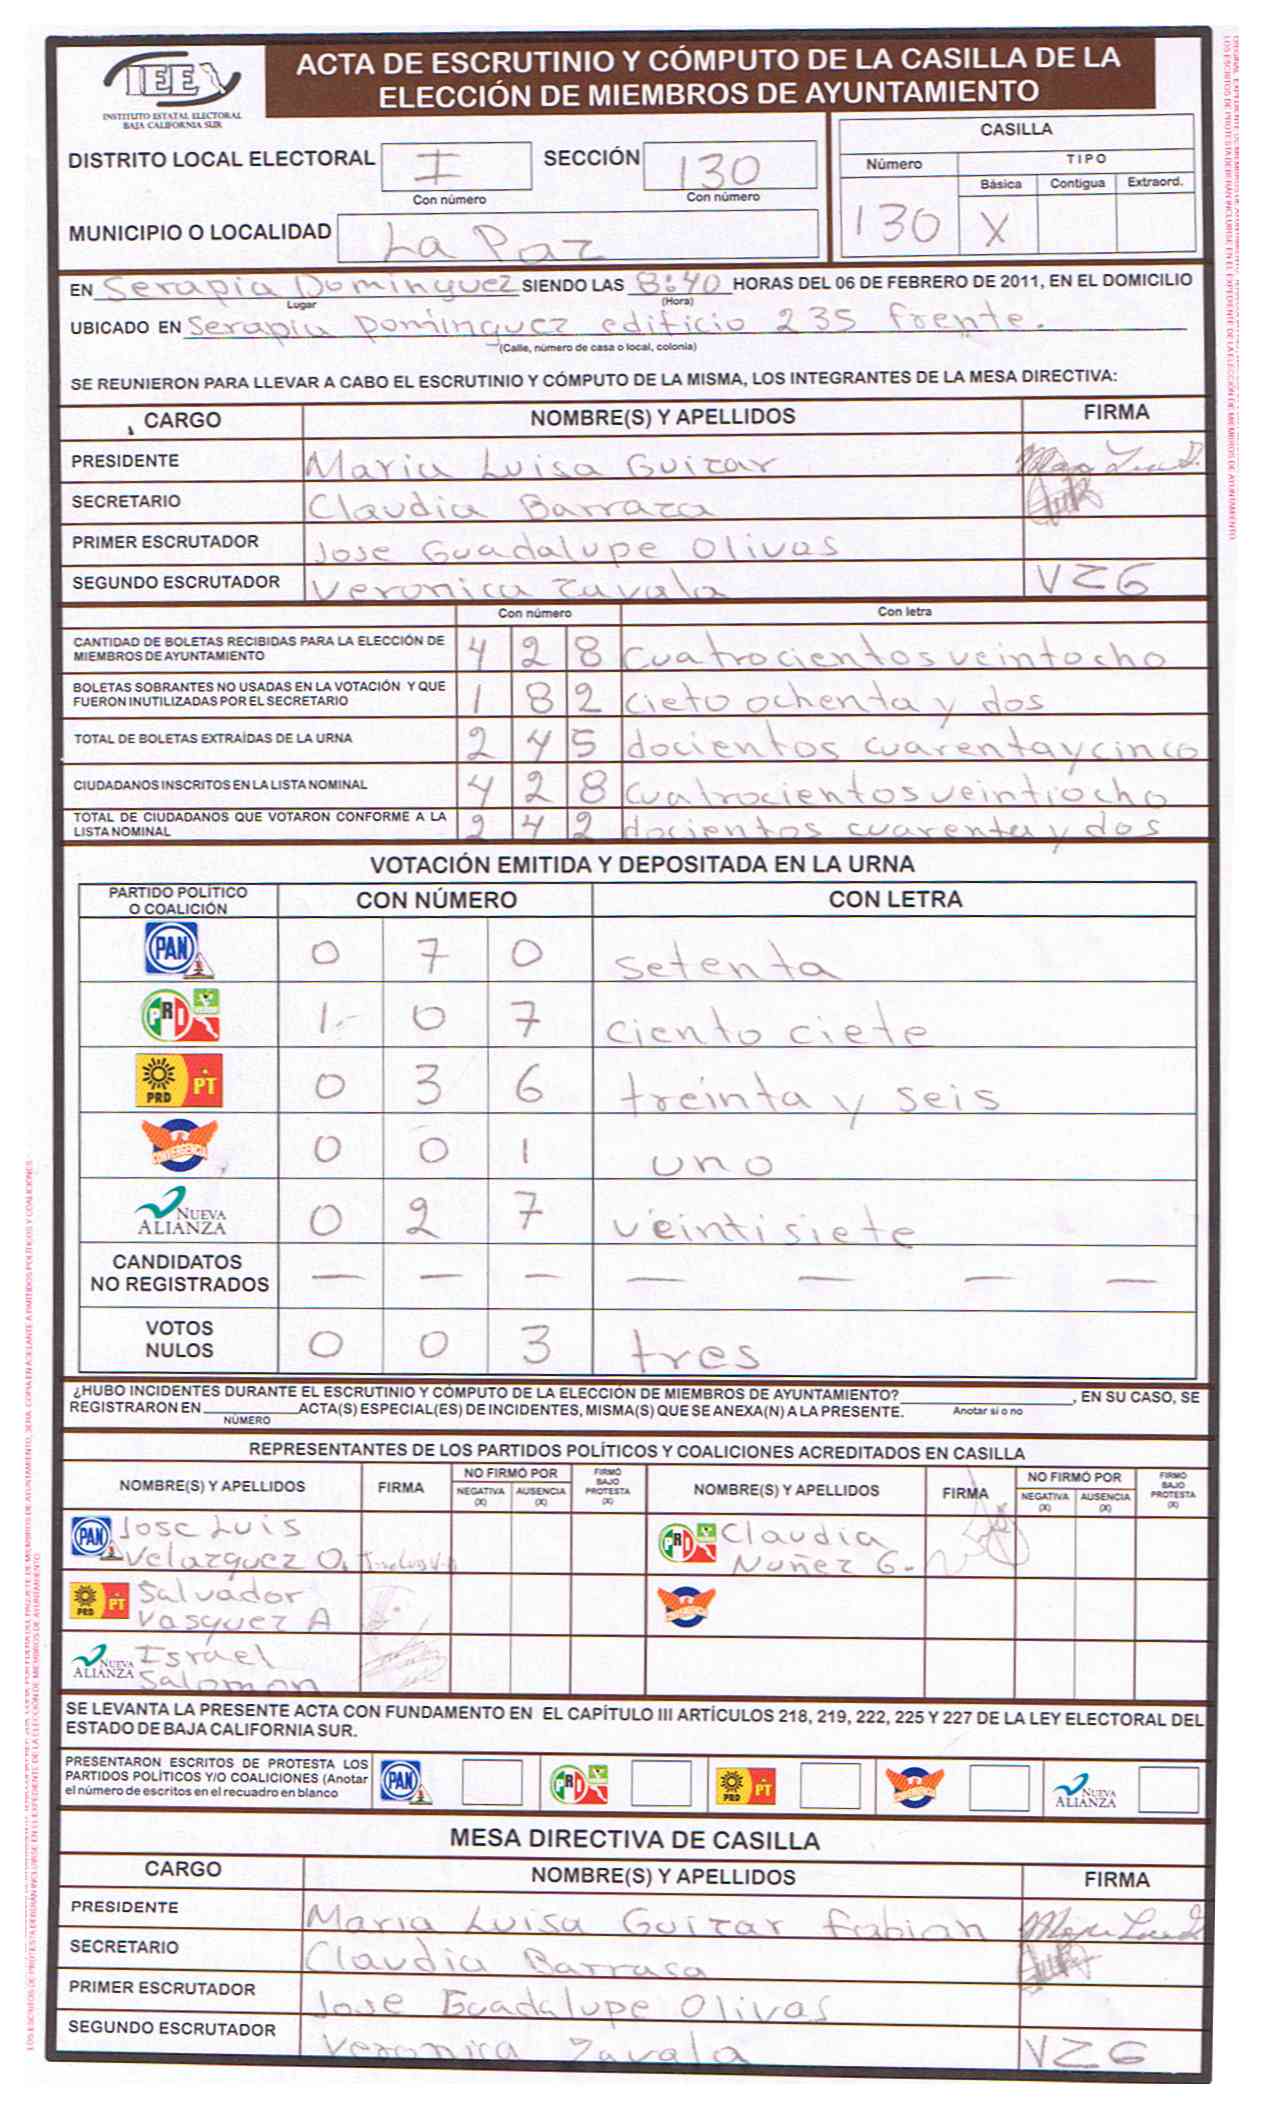 IEEA
INSTITUTO ESTATAL ELECTORAL
BAJA CALIFORNIA SUR
ACTA DE ESCRUTINIO Y CÓMPUTO DE LA CASILLA DE LA
ELECCIÓN DE MIEMBROS DE AYUNTAMIENTO
DISTRITO LOCAL ELECTORAL I SECCIÓN 130
Con número Con número
MUNICIPIO O LOCALIDAD La Paz
CASILLA
Número TIPO
Básica Contigua Extraord.
130 X
EN Serapia Dominguez SIENDO LAS 8:40 HORAS DEL 06 DE FEBRERO DE 2011, EN EL DOMICILIO
Lugar (Hora)
UBICADO EN Serapia Dominguez edificio 235 frente.
(Calle, número de casa o local, colonia)
SE REUNIERON PARA LLEVAR A CABO EL ESCRUTINIO Y CÓMPUTO DE LA MISMA, LOS INTEGRANTES DE LA MESA DIRECTIVA:
CARGO NOMBRE(S) Y APELLIDOS FIRMA
PRESIDENTE Maria Luisa Guizar
SECRETARIO Claudia Barraza
PRIMER ESCRUTADOR Jose Guadalupe Olivas
SEGUNDO ESCRUTADOR Veronica Zavala VZG
Con número Con letra
CANTIDAD DE BOLETAS RECIBIDAS PARA LA ELECCIÓN DE
MIEMBROS DE AYUNTAMIENTO 4 2 8 cuatrocientos veintocho
BOLETAS SOBRANTES NO USADAS EN LA VOTACIÓN Y QUE
FUERON INUTILIZADAS POR EL SECRETARIO 1 8 2 cieto ochenta y dos
TOTAL DE BOLETAS EXTRAÍDAS DE LA URNA 2 4 5 docientos cuarenta y cinco
CIUDADANOS INSCRITOS EN LA LISTA NOMINAL 4 2 8 cuatrocientos veintiocho
TOTAL DE CIUDADANOS QUE VOTARON CONFORME A LA
LISTA NOMINAL 2 4 2 docientos cuarenta y dos
VOTACIÓN EMITIDA Y DEPOSITADA EN LA URNA
PARTIDO POLÍTICO
O COALICIÓN CON NÚMERO CON LETRA
PAN 0 7 0 setenta
PRI 1 0 7 ciento ciete
PRD PT 0 3 6 treinta y seis
CONVERGENCIA 0 0 1 uno
NUEVA
ALIANZA 0 2 7 veintisiete
CANDIDATOS
NO REGISTRADOS — — — — — — —
VOTOS
NULOS 0 0 3 tres
¿HUBO INCIDENTES DURANTE EL ESCRUTINIO Y CÓMPUTO DE LA ELECCIÓN DE MIEMBROS DE AYUNTAMIENTO? , EN SU CASO, SE
REGISTRARON EN ACTA(S) ESPECIAL(ES) DE INCIDENTES, MISMA(S) QUE SE ANEXA(N) A LA PRESENTE. Anotar si o no
NÚMERO
REPRESENTANTES DE LOS PARTIDOS POLÍTICOS Y COALICIONES ACREDITADOS EN CASILLA
NOMBRE(S) Y APELLIDOS FIRMA NO FIRMÓ POR NEGATIVA (X) AUSENCIA (X) FIRMÓ BAJO PROTESTA (X) NOMBRE(S) Y APELLIDOS FIRMA NO FIRMÓ POR NEGATIVA (X) AUSENCIA (X) FIRMÓ BAJO PROTESTA (X)
PAN Jose Luis
Velazquez O.
PRI Claudia
Nuñez G.
PRD PT Salvador
Vasquez A
NUEVA ALIANZA Israel
Salomon
SE LEVANTA LA PRESENTE ACTA CON FUNDAMENTO EN EL CAPÍTULO III ARTÍCULOS 218, 219, 222, 225 Y 227 DE LA LEY ELECTORAL DEL
ESTADO DE BAJA CALIFORNIA SUR.
PRESENTARON ESCRITOS DE PROTESTA LOS
PARTIDOS POLÍTICOS Y/O COALICIONES (Anotar
el número de escritos en el recuadro en blanco
PAN PRI PRD PT NUEVA ALIANZA
MESA DIRECTIVA DE CASILLA
CARGO NOMBRE(S) Y APELLIDOS FIRMA
PRESIDENTE Maria Luisa Guizar Fabian
SECRETARIO Claudia Barrasa
PRIMER ESCRUTADOR Jose Guadalupe Olivas
SEGUNDO ESCRUTADOR Veronica Zavala VZG